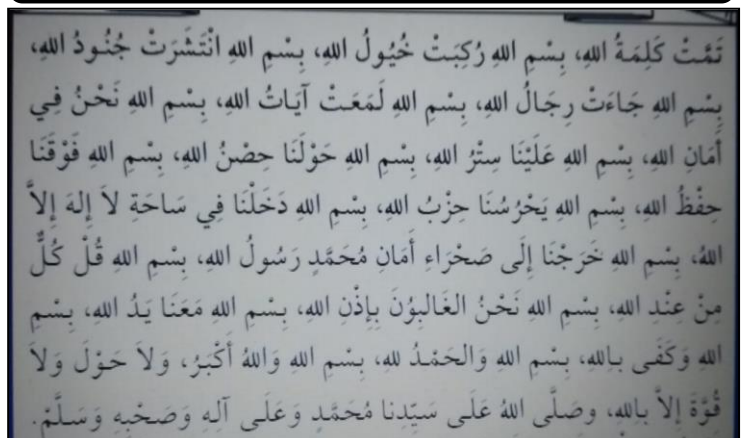 تَمَّتْ كَلِمَةُ اللهِ، بِسْمِ اللهِ رُكِبَتْ خُيُولُ اللهِ، بِسْمِ اللهِ انْتَشَرَتْ جُنُودُ اللهِ،
بِسْمِ اللهِ جَاءَتْ رِجَالُ اللهِ، بِسْمِ اللهِ لَمَعَتْ آيَاتُ اللهِ، بِسْمِ اللهِ نَحْنُ فِي
أَمَانِ اللهِ، بِسْمِ اللهِ عَلَيْنَا سِتْرُ اللهِ، بِسْمِ اللهِ حَوْلَنَا حِصْنُ اللهِ، بِسْمِ اللهِ فَوْقَنَا
حِفْظُ اللهِ، بِسْمِ اللهِ يَحْرُسُنَا حِزْبُ اللهِ، بِسْمِ اللهِ دَخَلْنَا فِي سَاحَةِ لاَ إِلهَ إِلاَّ
اللهُ، بِسْمِ اللهِ خَرَجْنَا إِلَى صَحْرَاءِ أَمَانِ مُحَمَّدٍ رَسُولُ اللهِ، بِسْمِ اللهِ قُلْ كُلٌّ
مِنْ عِنْدِ اللهِ، بِسْمِ اللهِ نَحْنُ الغَالِبُوُنَ بِإِذْنِ اللهِ، بِسْمِ اللهِ مَعَنَا يَدُ اللهِ، بِسْمِ
اللهِ وَكَفَى بِاللهِ، بِسْمِ اللهِ وَالحَمْدُ للهِ، بِسْمِ اللهِ وَاللهُ أَكْبَرُ، وَلاَ حَوْلَ وَلاَ
قُوَّةَ إِلاَّ بِاللهِ، وصَلَّى اللهُ عَلَى سَيِّدِنا مُحَمَّدٍ وَعَلَى آلِهِ وَصَحْبِهِ وَسَلَّمْ.